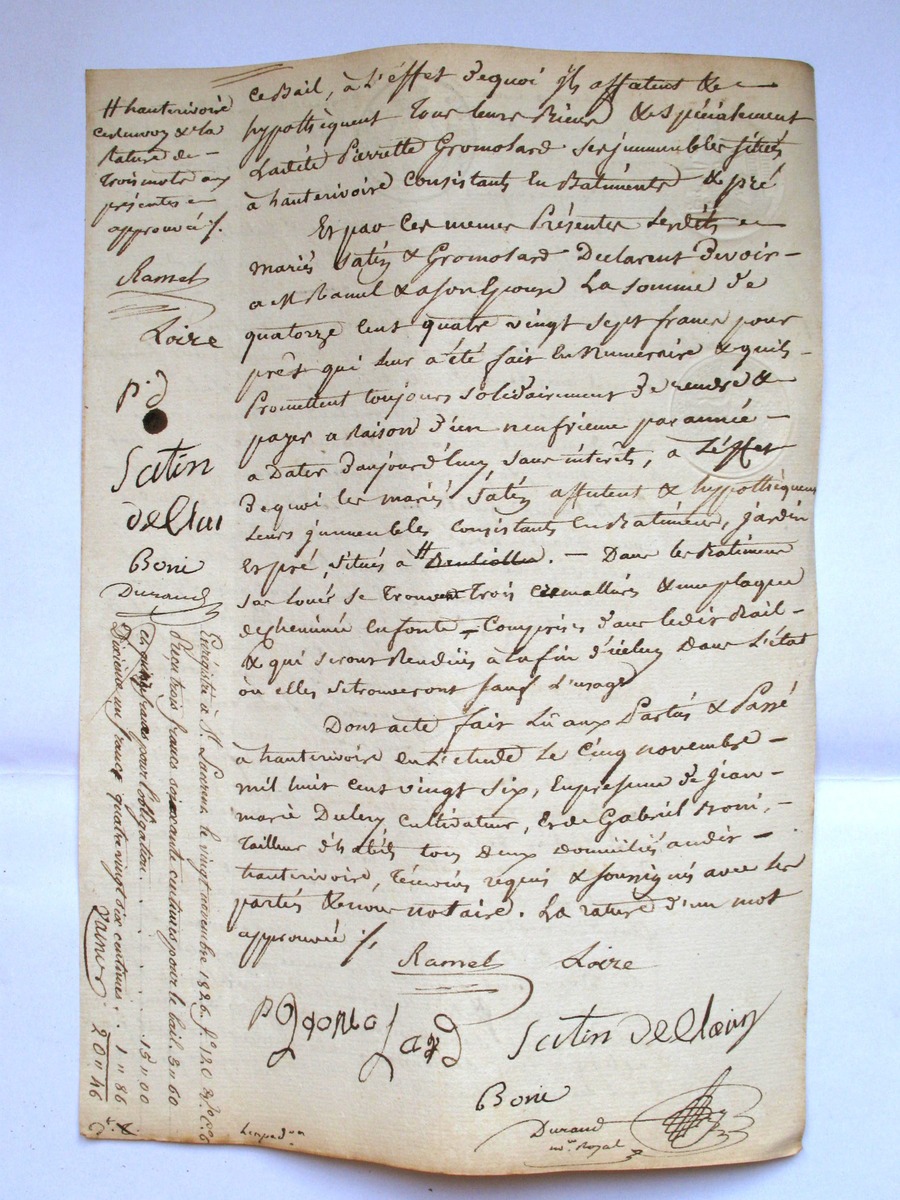 ce Bail, à L'éffet dequoi ils affatent &
hypothèquent Tous leurs Biens & spécialement
Ladite Pierrette Gromolard ses jmmeubles sitüés
à hauterivoire Consistants En Batiments & pré
Et par Ces memes Présentes Lesdits
mariés Satin & Gromolard Déclarent Devoir
a M Ramel & a son Epouse La somme de
quatorze Cent quatre vingt sept francs pour
prêt qui leur a été fait En Numeraire & quils
Promettent toujours solidairement De rendre &
payer a Raison d'un neufvieme par année
a Dater d'aujourd'huy, sans intérêts, a L'éffet
Dequoi les mariés Satin affectent & hypothèquent
Leurs jmmeubles Consistants En Batiments, Jardin
Et pré, sitüés à #. — Dans les Batiments
sus loués se Trouvent trois & une plaque
de cheminée en fonte — Comprises dans ledit Bail
& qui seront Rendües à la fin d'iceluy Dans L'état
où elles se trouveront sauf L'usage
Dont acte fait Lû aux Parties & Passé
à hauterivoire en L'etude Le Cinq novembre
mil huit cent vingt six, En présence de Jean
marie Cultivateur, Et de Gabriel Boni,
Tailleur d'habits tous deux Domiciliés audit
hauterivoire, Témoins requis & soussignés avec les
parties & nous notaire. La rature d'un mot
approuvée /.
Ramel Loire
P Gromo Lard Satin
Boni
Durand
Royal
# hauterivoire
ce renvoy & la
rature de
Trois mots aux
présentes
approuvés /.
Ramel
Loire
p. d
Satin
Boni
Durand
Enrégistré à St. Laurent le vingt novembre 1826. fo. 120
Reçu trois francs soixante centimes pour le bail. 3 " 60
et quinze francs pour l'obligation . . . . . 15 " 00
Dixième un franc quatre vingt six centimes . . 1 " 86
20 " 46